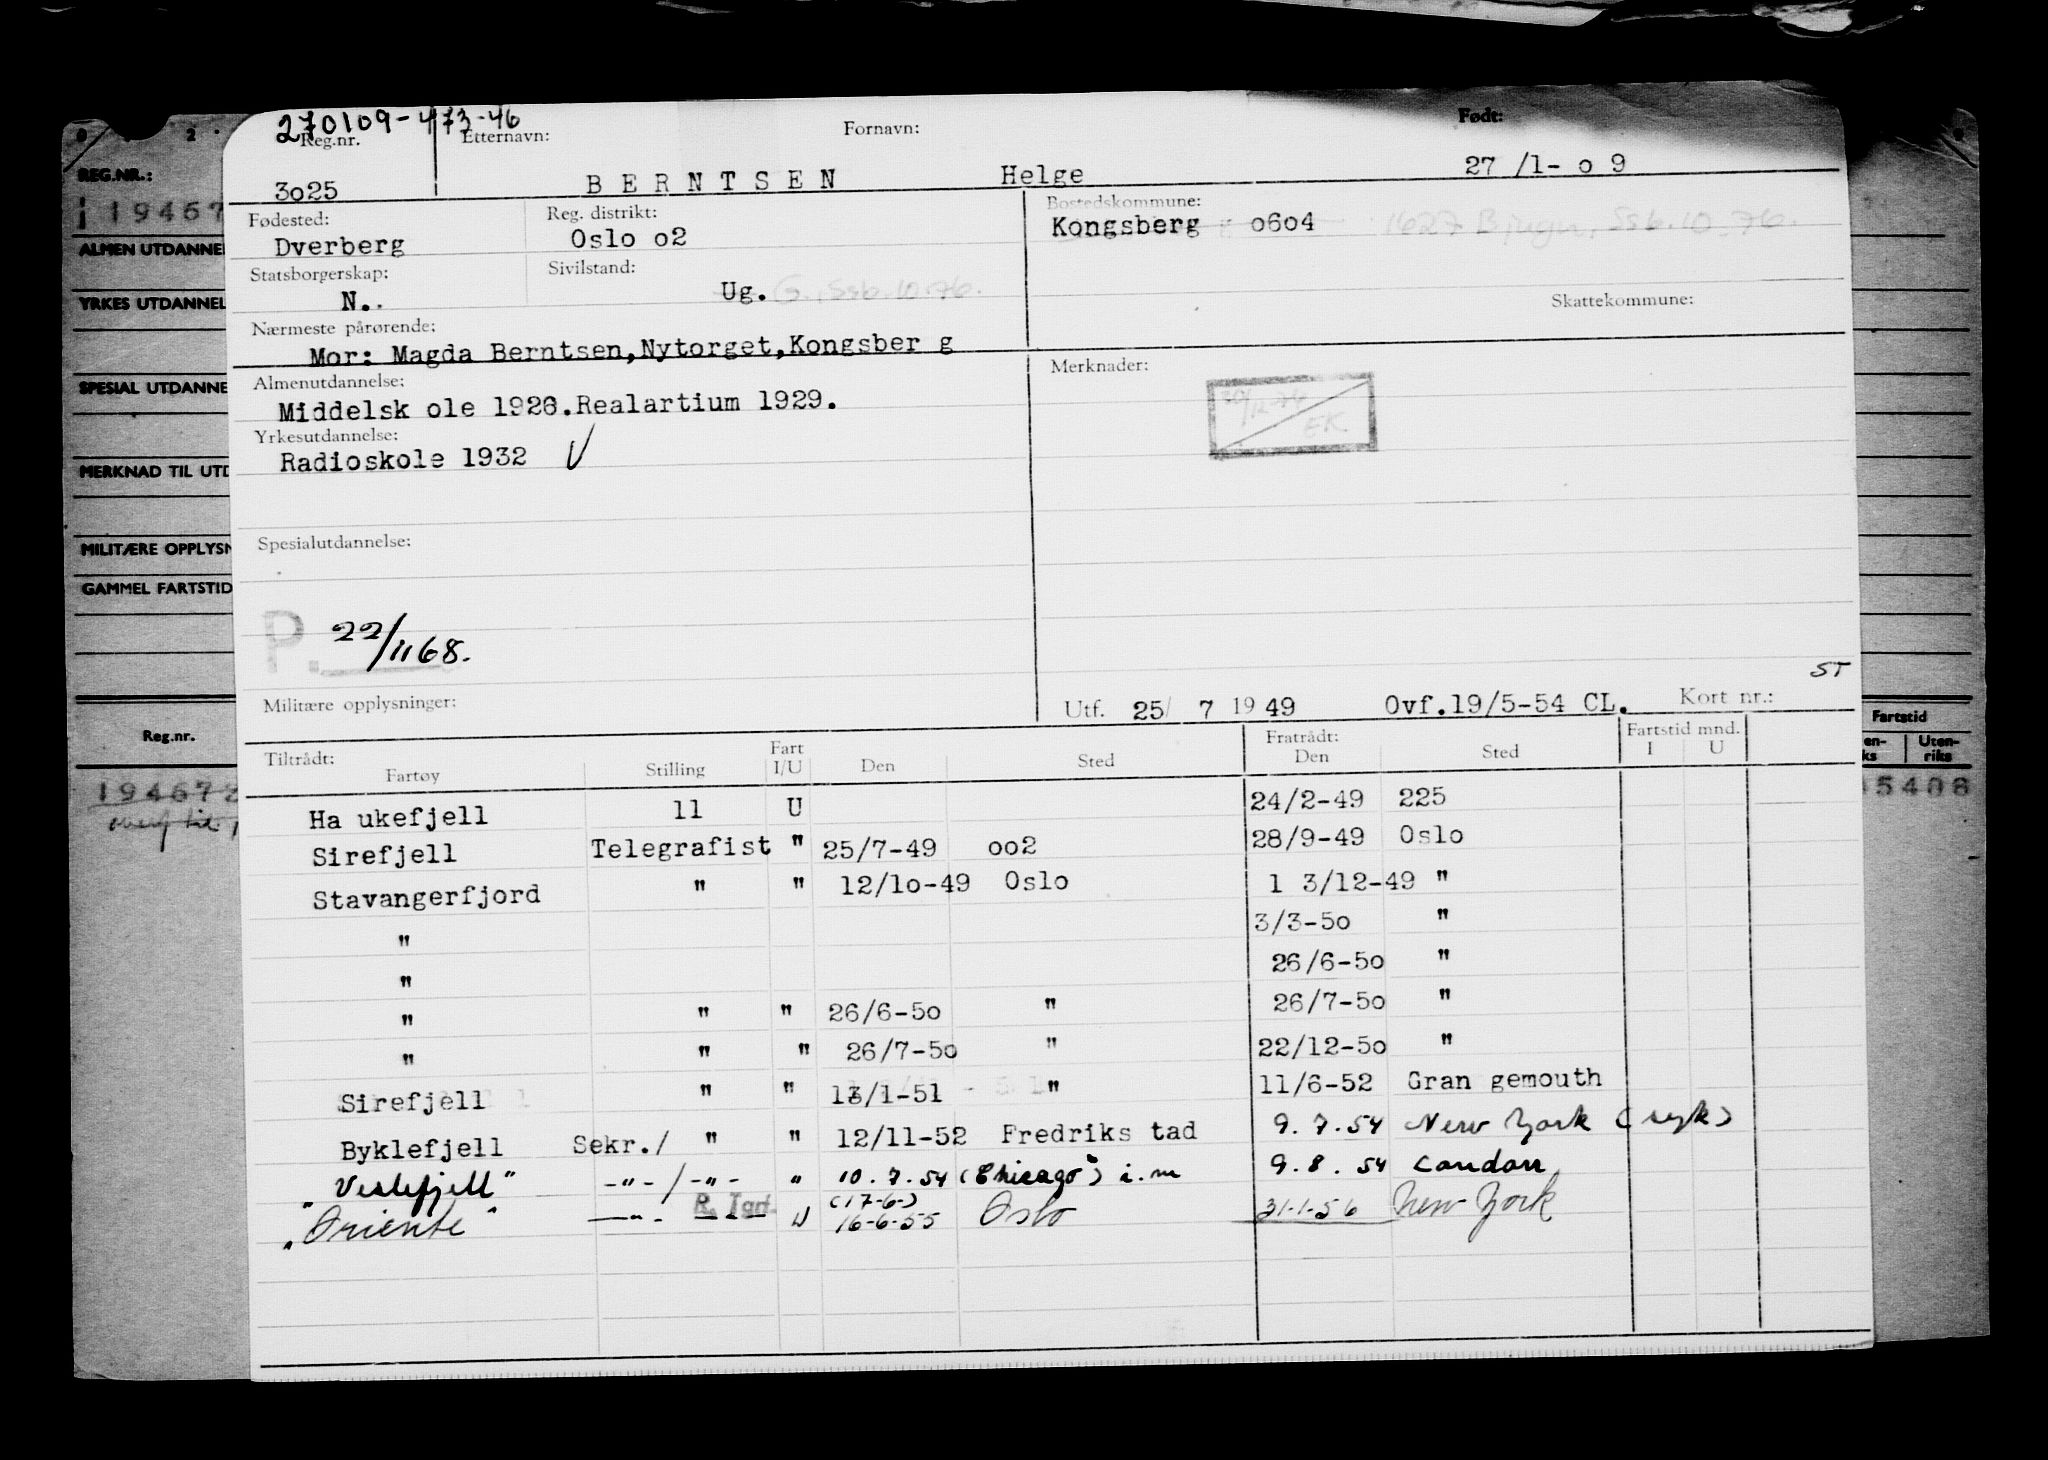 270109-473-46
Reg.nr. Etternavn: Fornavn: Født:
3o25 B E R N T S E N Helge 27 /1- o 9
Fødested: Reg. distrikt: Bostedskommune:
Dverberg Oslo o2 Kongsberg o6o4 1627 Bjugn, Ssb.10.76.
Statsborgerskap: Sivilstand:
N.. Ug. G., Ssb. 10.76.
Skattekommune:
Nærmeste pårørende:
Mor: Magda Berntsen,Nytorget,Kongsber g
Almenutdannelse: Merknader:
Middelsk ole 1926.Realartium 1929.
30/12-76 EK
Yrkesutdannelse:
Radioskole 1932 V
Spesialutdannelse:
P. 22/11 68.
ST
Militære opplysninger: Utf. 25/ 7 19 49 Ovf.19/5-54 CL. Kort nr.:
Tiltrådt: Fratrådt: Fartstid mnd.
Fartøy Stilling Fart I/U Den Sted Den Sted I U
Ha ukefjell 11 U 24/2-49 225
Sirefjell Telegrafist " 25/7-49 oo2 28/9-49 Oslo
Stavangerfjord " " 12/1o-49 Oslo 1 3/12-49 "
" 3/3-5o "
" 26/6-5o "
" " " 26/6-5o " 26/7-5o "
" " " 26/7-5o " 22/12-5o "
Sirefjell " " 13/1-51 " 11/6-52 Gran gemouth
Byklefjell Sekr./ " " 12/11-52 Fredriks tad 9.7.54 New York (syk)
"Veslefjell" -"-/-"- " 10.7.54 (Chicago) i.m 9.8.54 London
R. Tgrf. (17-6-)
"Oriente" -"- -"- U 16-6-55 Oslo 31-1-56 New York
0 2
REG.NR.:
19467
ALMEN UTDANNEL
YRKES UTDANNEL
SPESIAL UTDANNE
MERKNAD TIL UTD
MILITÆRE OPPLYSN
GAMMEL FARTSTID
Reg.nr.
194672
Fartstid
en- Uten-
ks riks
5408